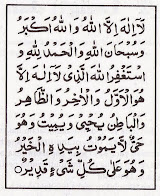 لَآ اِلٰهَ اِلَّا اللهُ وَاللهُ اَكْبَرُ
وَسُبْحَانَ اللهِ وَالْحَمْدُ لِلّٰهِ وَ
اَسْتَغْفِرُ اللهَ الَّذِىْ لَآ اِلٰهَ اِلَّا
هُوَ الْاَوَّلُ وَالْاٰخِرُ وَالظَّاهِرُ
وَالْبَاطِنُ يُحْيِىْ وَيُمِيْتُ وَهُوَ
حَىٌّ لَّا يَمُوْتُ بِيَدِهِ الْخَيْرُ
وَهُوَ عَلٰى كُلِّ شَىْءٍ قَدِيْرٌ